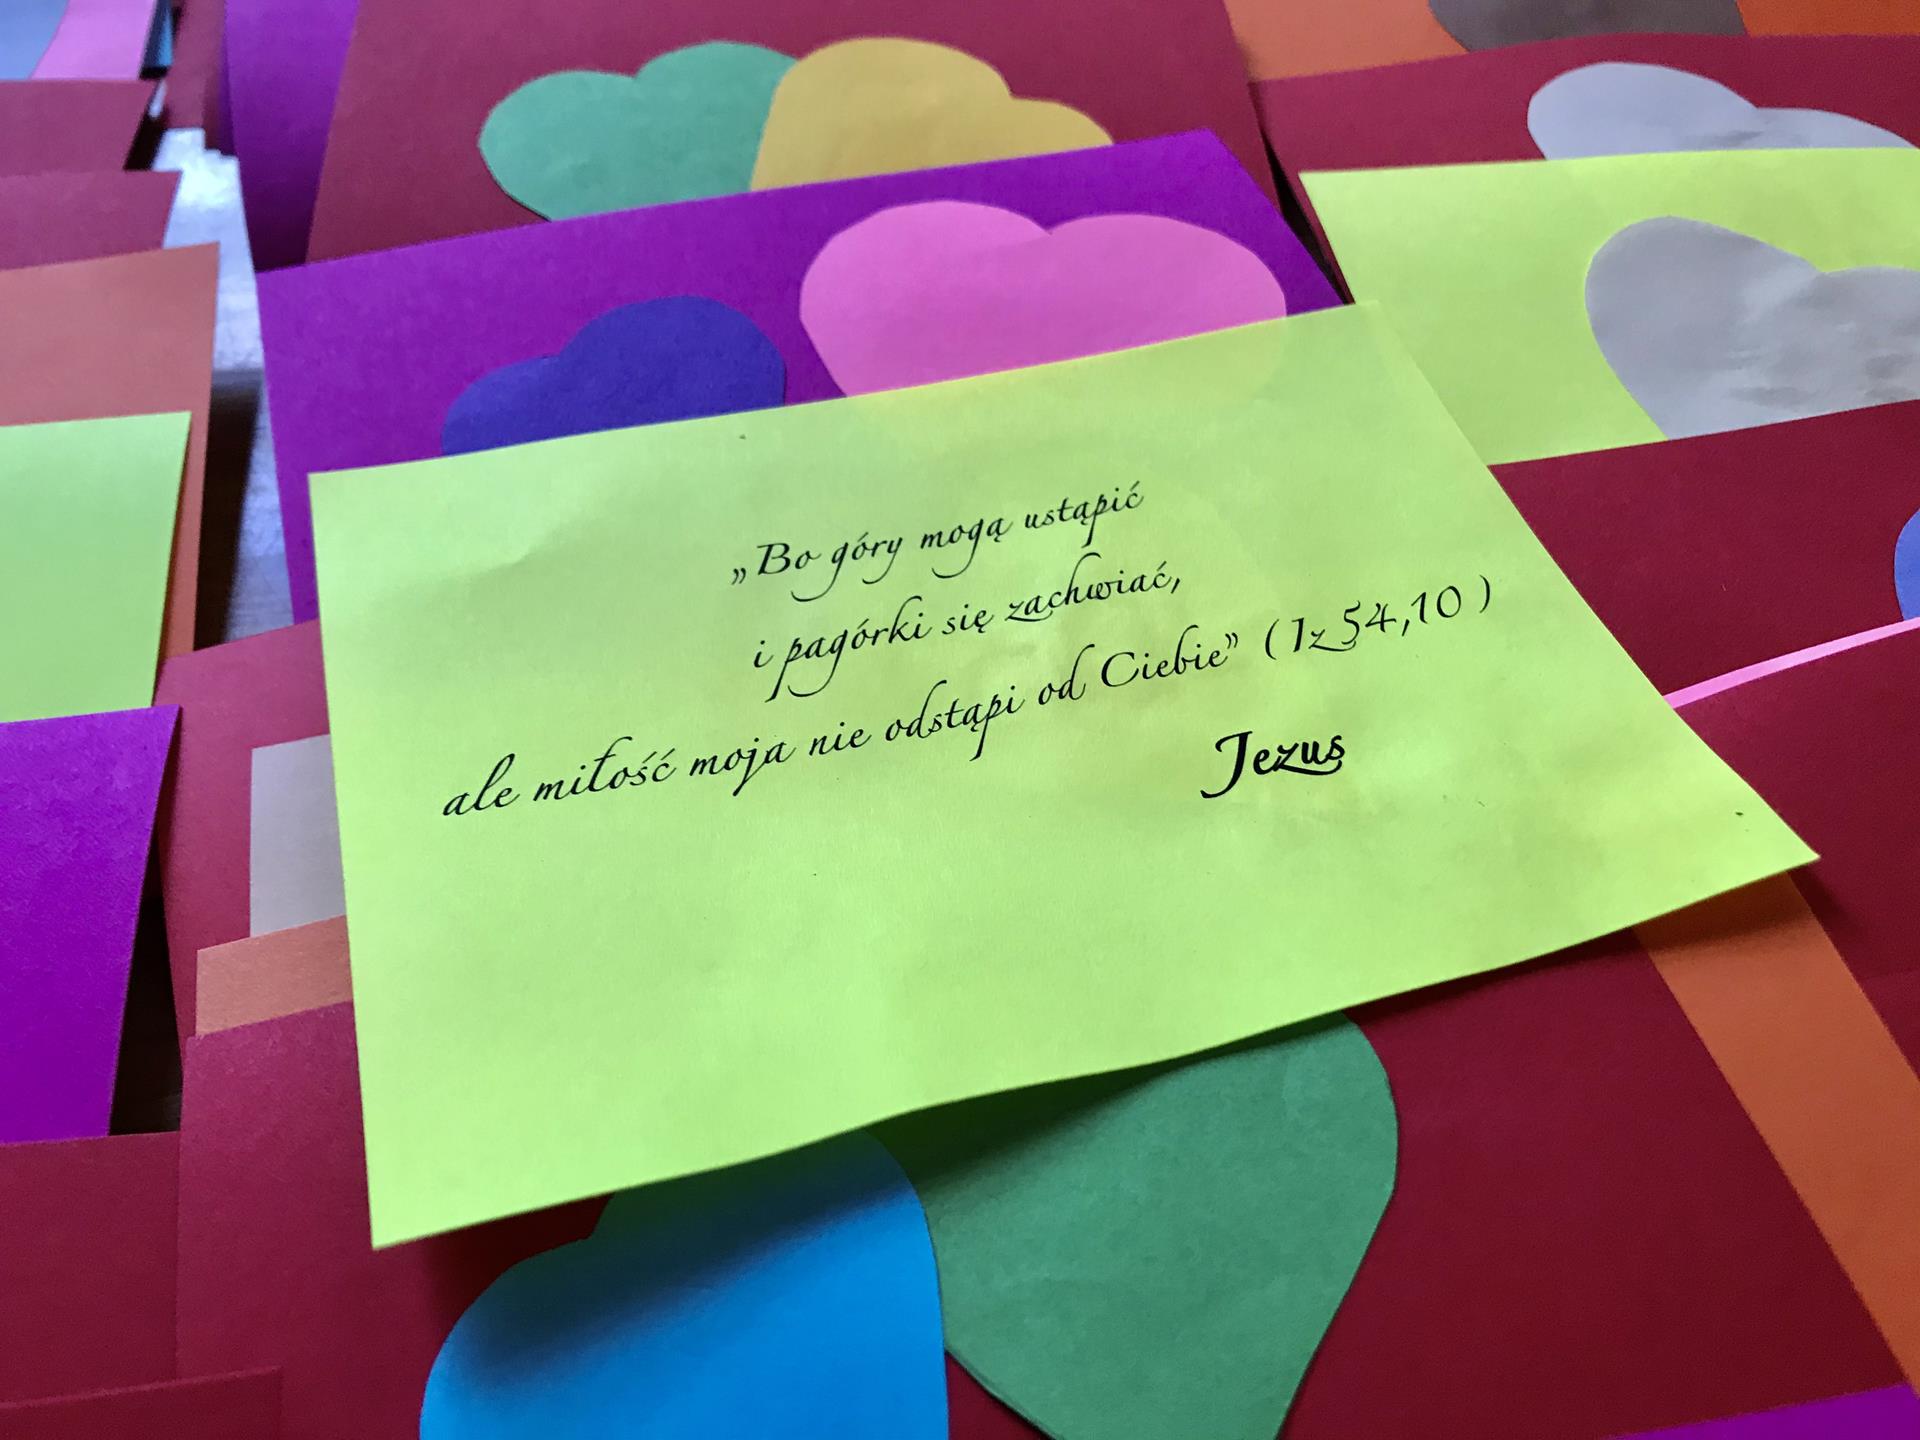 „Bo góry mogą ustąpić
i pagórki się zachwiać,
ale miłość moja nie odstąpi od Ciebie” (Iz 54,10 )
Jezus